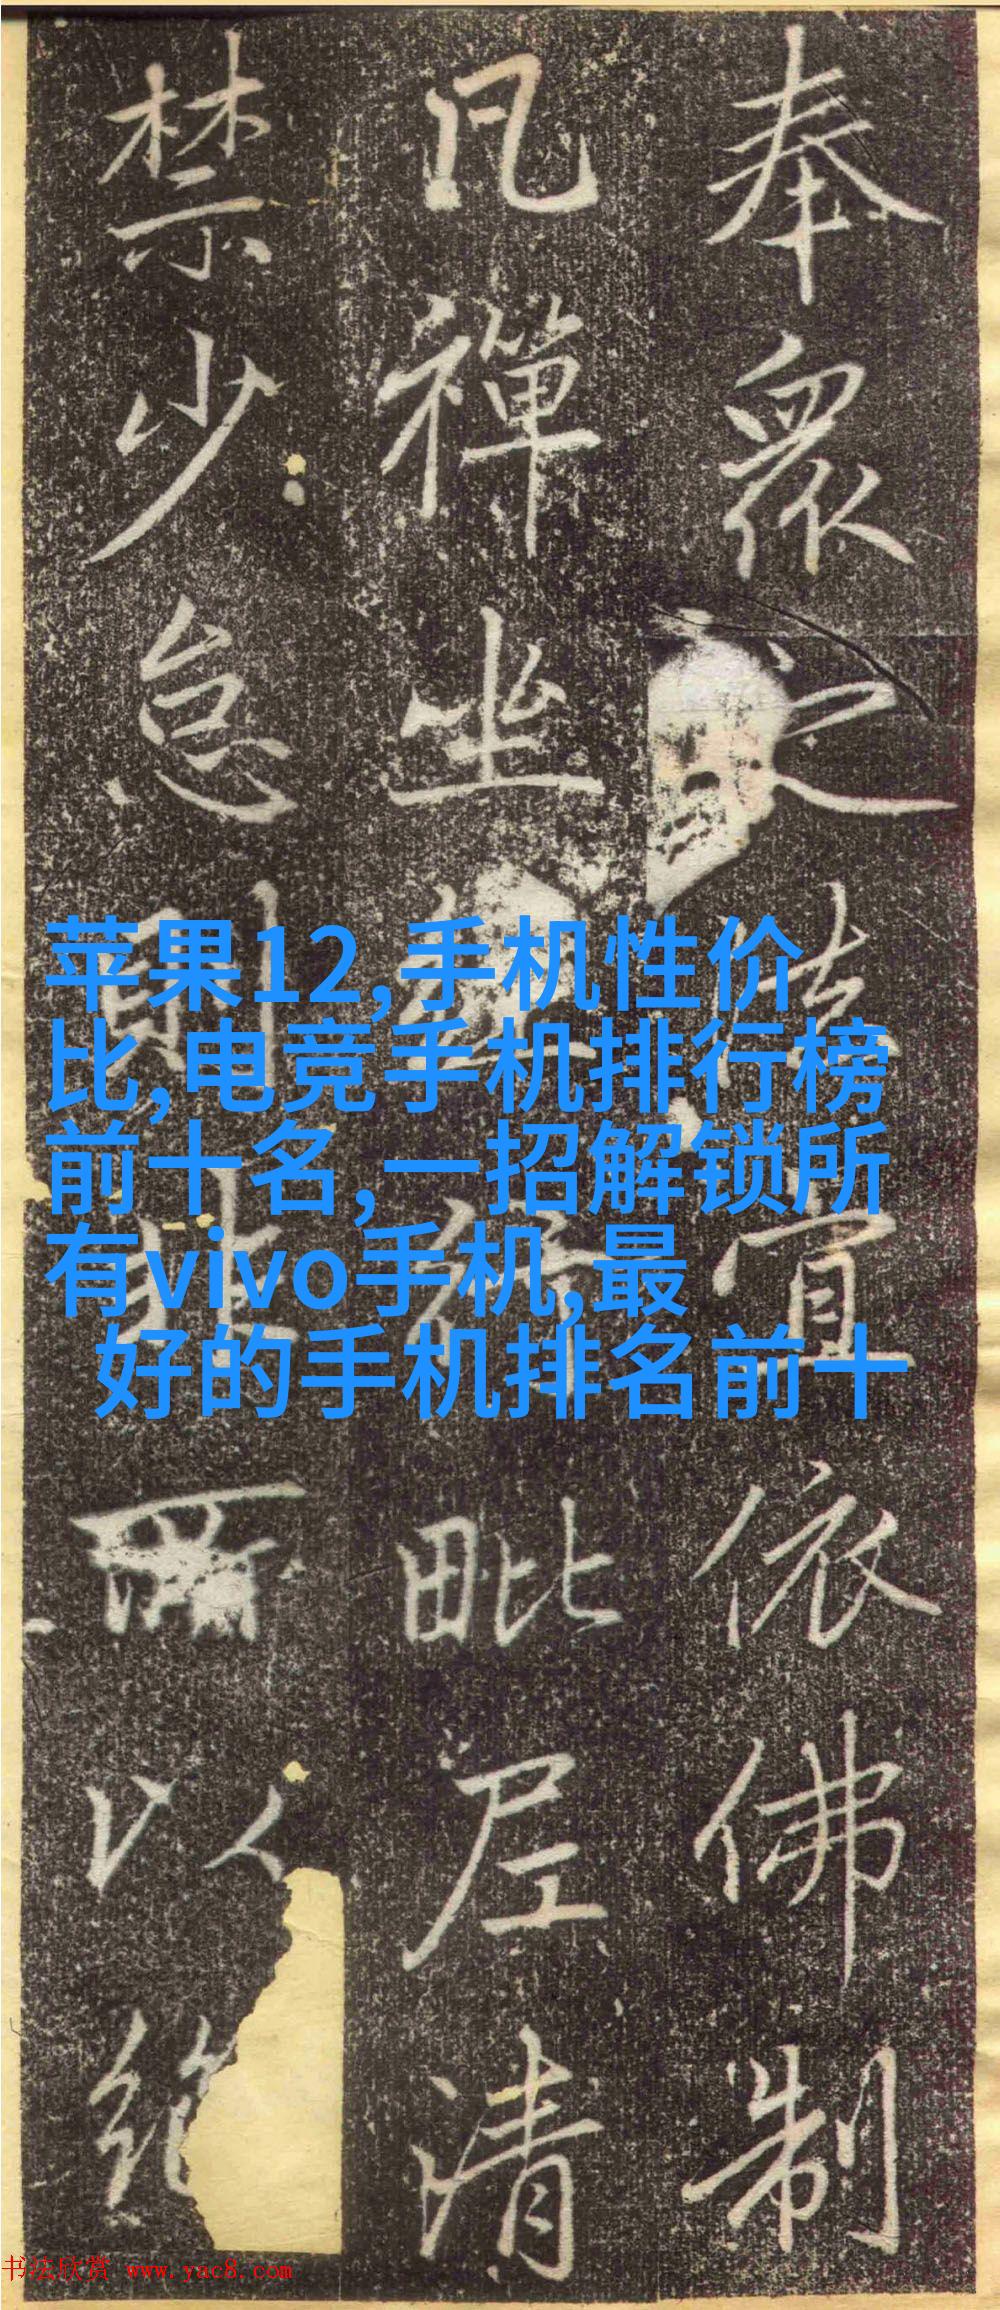 奉眾法宜依佛制
凡禪坐行毗尼清
禁少怠則非所以
苹果12,手机性价
比,电竞手机排行榜
前十名,一招解锁所
有vivo手机,最
好的手机排名前十
书法欣赏 www.yac8.com